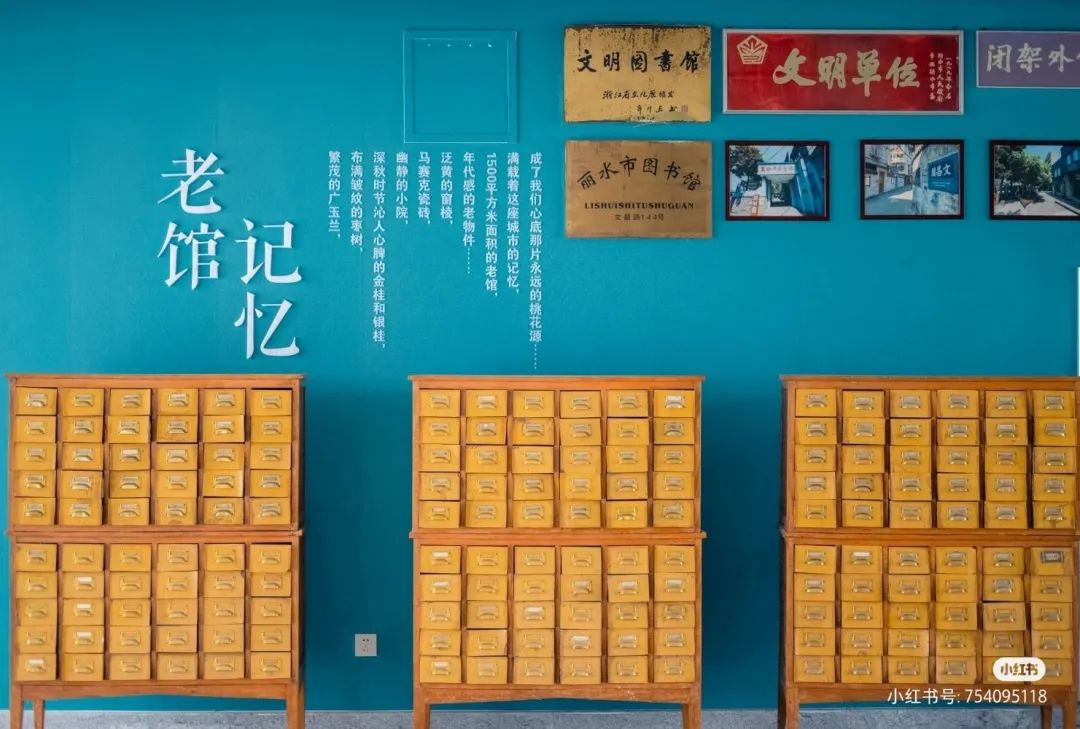 老馆
记忆
繁茂的广玉兰，
布满皱纹的枣树，
深秋时节沁人心脾的金桂和银桂，
幽静的小院，
马赛克瓷砖，
泛黄的窗棱，
年代感的老物件……
1500平方米面积的老馆，
满载着这座城市的记忆，
成了我们心底那片永远的桃花源……
文明图書馆
浙江省文化厅颁发
文明单位
闭架外
丽水市图书馆
LISHUISHITUSHUGUAN
文昌路144号
小红书
小红书号: 754095118